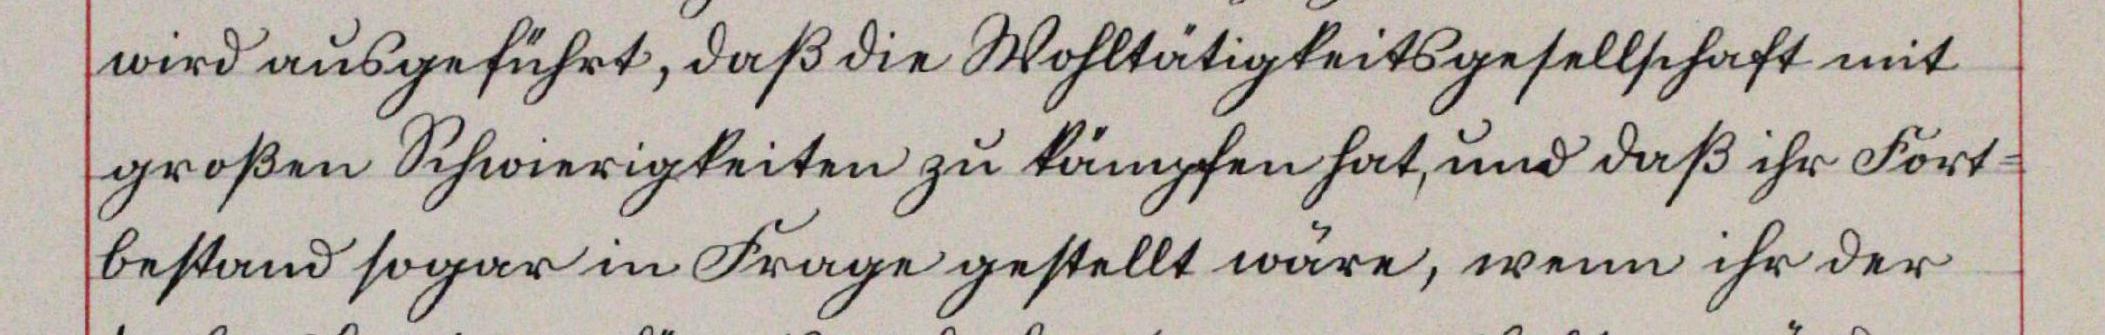 wird ausgeführt, daß die Wohltätigkeitsgesellschaft mit
großen Schwierigkeiten zu kämpfen hat, und daß ihr Fort=
bestand sogar in Frage gestellt wäre, wenn ihr der